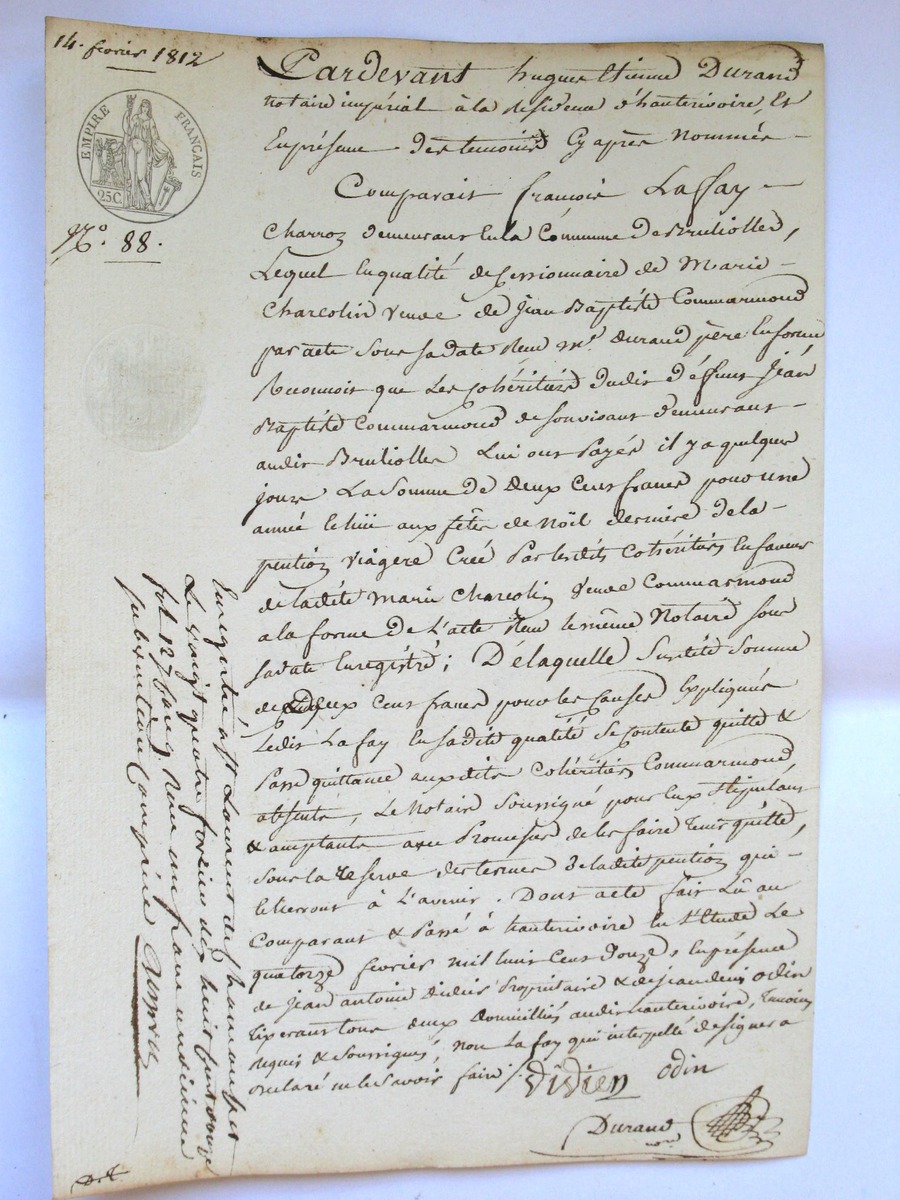 14. fevrier 1812
EMPIRE FRANCAIS
25C.
N.º 88.
Pardevant hugue Etienne Durand
notaire impérial à la residence d'hauterivoire, Et
En présence des temoins Cy après nommés -
Comparait françois Lafay -
Charron demeurant En la Commune de Brulliolles,
Lequel En qualité de Cessionnaire de Marie -
Charcolin veuve de Jean Baptiste Commarmond
par acte sous sa date Reçu Mr. Durand père En forme
Reconnoit que Les Cohéritiérs dudit déffunt Jéan
Baptisté Commarmond de son vivant demeurant -
audit Brulliolles Lui ont Payés il y a quelque
jours La Somme de deux Cent francs pour une
année échüe aux fêtes de Nöel dernière de la -
pention viagère Créé Par lesdits Cohéritiérs En faveur
de ladite Marie Charcolin veuve Commarmond
a la forme de L'acte Reçu le même Notaire sous
sadate Enrégistré ; Délaquelle Susdité Somme
de deux Cent francs pour les Causes Expliquées
Ledit Lafay En sadite qualité Se Contente quitte &
Passe quittance auxdits Cohéritiérs Commarmond,
absents, Le Notaire Soussigné pour Eux Stipulant
& acceptant avec Promesse de les faire tenir quitte,
Sous la Reserve des termes de ladite pention qui -
écherront à L'avenir. Dont acte fait Lû au
Comparant & Passé à hauterivoire En L'Etude Le
quatorze fevrier mil huit Cent Douze, En présence
de Jean antoine Didier Propriétaire & de jean denis odin
Tixerant tous deux domiciliés audit hauterivoire, temoins
Requis & Soussignés, non Lafay qui interpellé de signer a
declaré ne le savoir faire ./.
Didier odin
Durand
nore
Enregistré a St Laurent de Chamousset
Le vingt quatre fevrier dix huit cent douze
fol. 127 Reçu un franc un décime
subvention Comprise